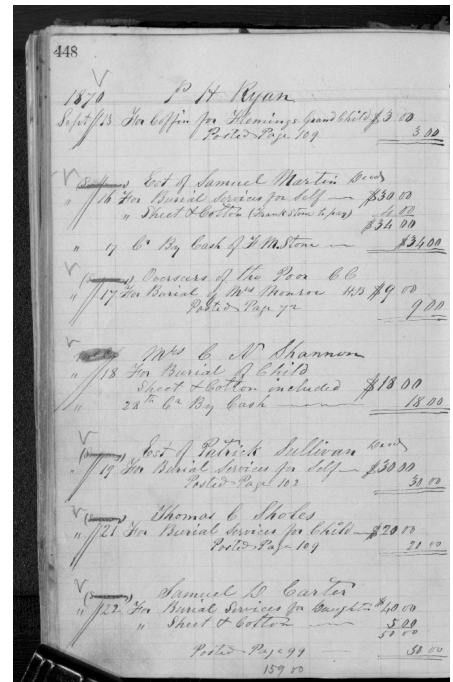 448
1870 P H Ryan
Sept 13 For Coffin for Flemings Grand Child $3 00
Posted Page 109 3 00
Est of Samuel Martin Decd
" 16 For Burial Services for Self $30 00
" Sheet & Cotton (Frank Stone to pay) 4 00
$34 00
" 17 Cr By Cash of F M Stone $34 00
Overseers of the Poor C C
" 17 For Burial of Mrs Monroe $9 00
Posted Page 72 9 00
Mrs C N Shannon
" 18 For Burial of Child
Sheet & Cotton included $18 00
" 28th Cr By Cash 18 00
Est of Patrick Sullivan Decd
" 19 For Burial Services for Self $30 00
Posted Page 102 30 00
Thomas C Sholes
" 21 For Burial Services for Child $20 00
Posted Page 109
Samuel D. Carter
" 22 For Burial Services for Daughter $40 00
" Sheet & Cotton 5 00
50 00
Posted Page 99 50 00
159 00